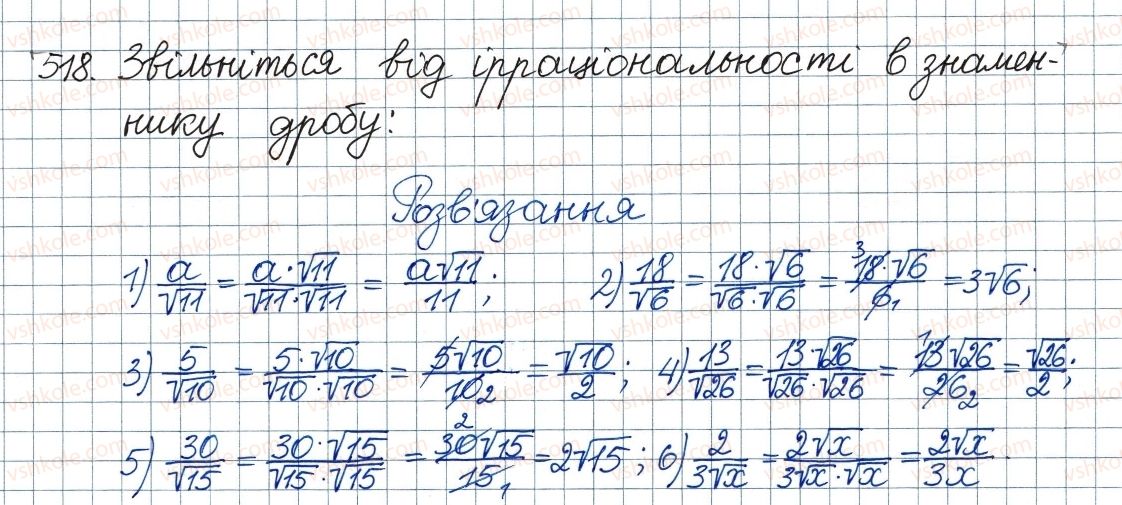 518. Звільніться від ірраціональності в знамен-
нику дробу:
Розв'язання
1) a/√11 = a·√11/√11·√11 = a√11/11; 2) 18/√6 = 18·√6/√6·√6 = 18³·√6/6₁ = 3√6;
3) 5/√10 = 5·√10/√10·√10 = 5√10/10₂ = √10/2; 4) 13/√26 = 13·√26/√26·√26 = 13¹√26/26₂ = √26/2;
5) 30/√15 = 30·√15/√15·√15 = 30²√15/15₁ = 2√15; 6) 2/3√x = 2√x/3√x·√x = 2√x/3x
vshkole.com